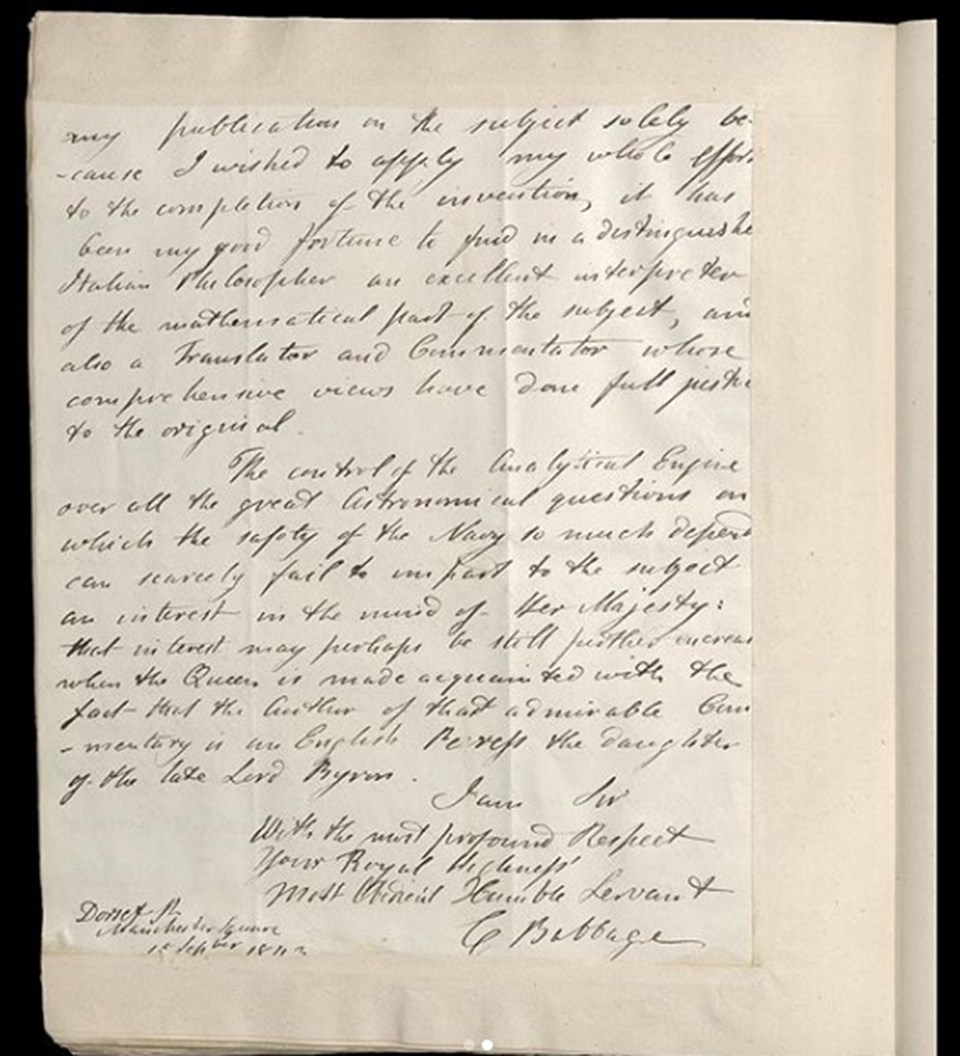 my publication on the subject solely be-
-cause I wished to apply my whole effor
to the completion of the invention, it has
been my good fortune to find in a distinguishe
Italian Philosopher an excellent interpreter
of the mathematical part of the subject, and
also a Translator and Commentator whose
comprehensive views have done full justic
to the original.
The control of the Analytical Engine
over all the great Astronomical questions on
which the safety of the Navy so much depend
can scarcely fail to impart to the subject
an interest in the mind of Her Majesty:
that interest may perhaps be still further increas
when the Queen is made acquainted with the
fact that the Author of that admirable Com
-mentary is an English Peeress the daughter
of the late Lord Byron.
I am Sir
With the most profound Respect
Your Royal Highness'
Most Obedient Humble Servant
C Babbage
Dorset St
Manchester Square
1st Septber 1843